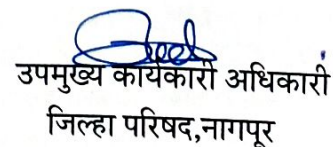 उपमुख्य कार्यकारी अधिकारी
जिल्हा परिषद,नागपूर